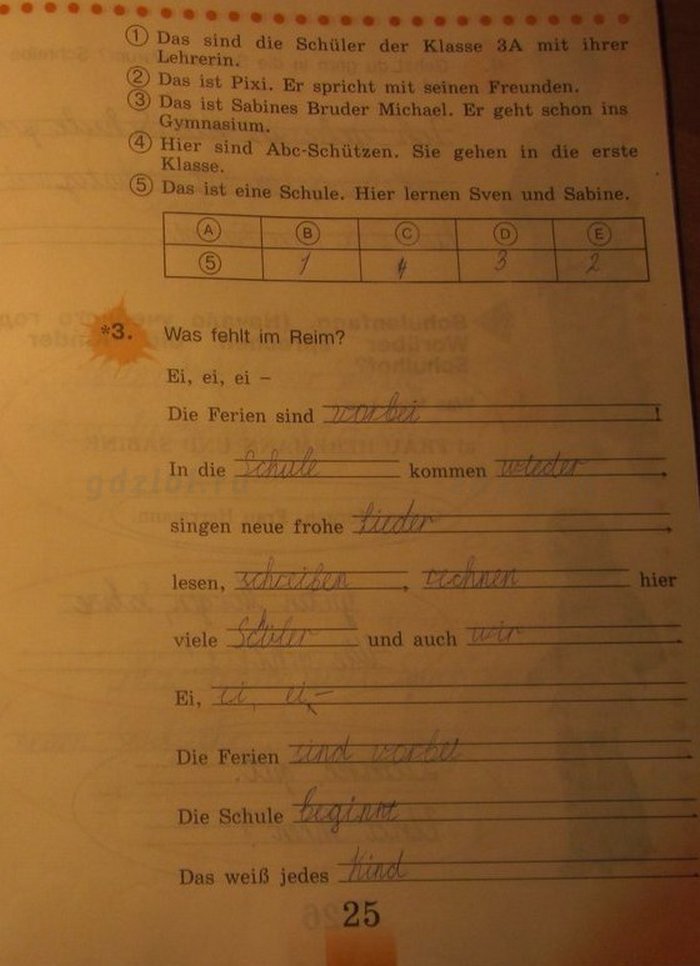 ① Das sind die Schüler der Klasse 3A mit ihrer
Lehrerin.
② Das ist Pixi. Er spricht mit seinen Freunden.
③ Das ist Sabines Bruder Michael. Er geht schon ins
Gymnasium.
④ Hier sind Abc-Schützen. Sie gehen in die erste
Klasse.
⑤ Das ist eine Schule. Hier lernen Sven und Sabine.
Ⓐ Ⓑ Ⓒ Ⓓ Ⓔ
⑤ 1 4 3 2
*3. Was fehlt im Reim?
Ei, ei, ei –
Die Ferien sind vorbei !
In die Schule kommen wieder,
singen neue frohe Lieder,
lesen, schreiben, rechnen hier
viele Schüler und auch wir.
Ei, ei, ei –
Die Ferien sind vorbei.
Die Schule beginnt,
Das weiß jedes Kind.
25